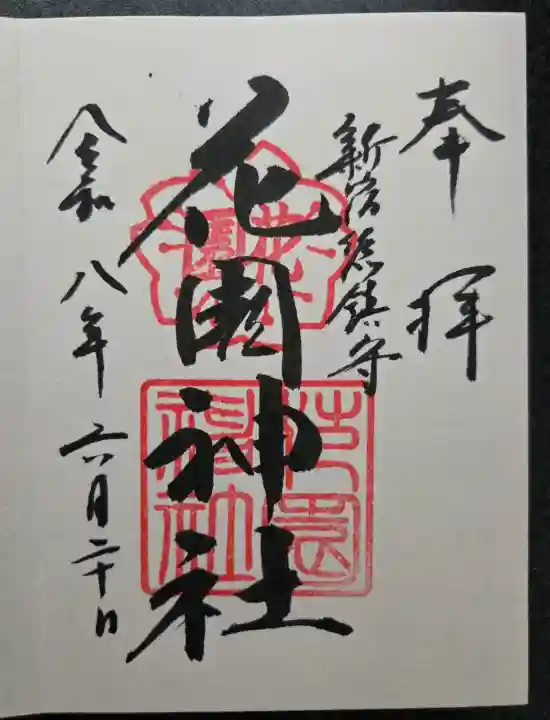 奉拝
新宿総鎮守
花園神社
令和八年六月二十日
花園神社